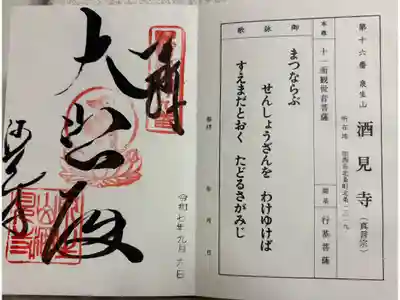 第十六番 泉生山
酒見寺（真言宗）
所在地 加西市北条町北条一三一九
本尊 十一面観世音菩薩
開基 行基菩薩
御詠歌
まつならぶ
せんしょうざんを わけゆけば
すえまだとおく たどるさがみじ
奉拝 年 月 日
奉拝
大悲殿
酒見寺
令和七年九月六日